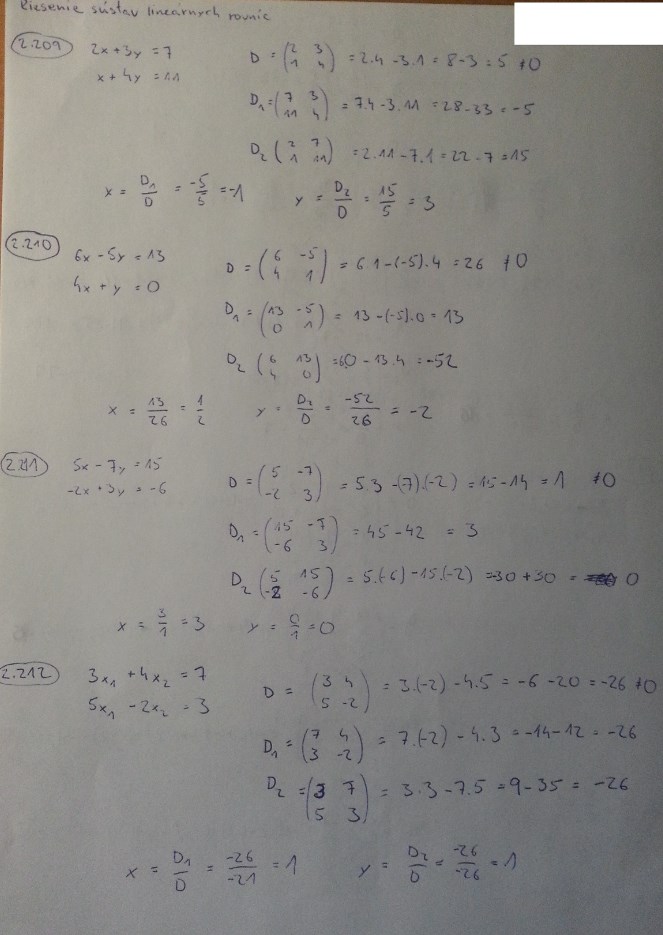 Riesenie sústav lineárnych rovníc
2.209 2x+3y=7 D = (2 3 1 4) = 2.4 -3.1 = 8-3 = 5 ≠0
x+4y=11
D1=(7 3 11 4) = 7.4-3.11 =28-33 = -5
D2 (2 7 1 11) =2.11-7.1=22-7=15
x = D1/D = -5/5 =-1 y = D2/D = 15/5 = 3
2.210 6x-5y=13 D = (6 -5 4 1) = 6.1-(-5).4 = 26 ≠0
4x+y=0
D1 = (13 -5 0 1) = 13-(-5).0=13
D2 (6 13 4 0) =6.0-13.4 =-52
x = 13/26 = 1/2 y = D2/D = -52/26 = -2
2.211 5x-7y=15 D = (5 -7 -2 3) = 5.3-(7).(-2) =15-14=1 ≠0
-2x+3y=-6
D1 = (15 -7 -6 3) = 45-42 = 3
D2 (5 15 -2 -6) = 5.(-6)-15.(-2) =-30+30 = 0
x = 3/1 = 3 y = 0/1 =0
2.212 3x1+4x2=7 D = (3 4 5 -2) = 3.(-2)-4.5 = -6-20 = -26 ≠0
5x1-2x2=3
D1 = (7 4 3 -2) = 7.(-2)-4.3 =-14-12 = -26
D2 =(3 7 5 3) = 3.3-7.5 =9-35 = -26
x = D1/D = -26/-21 = 1 y = D2/D = -26/-26 = 1